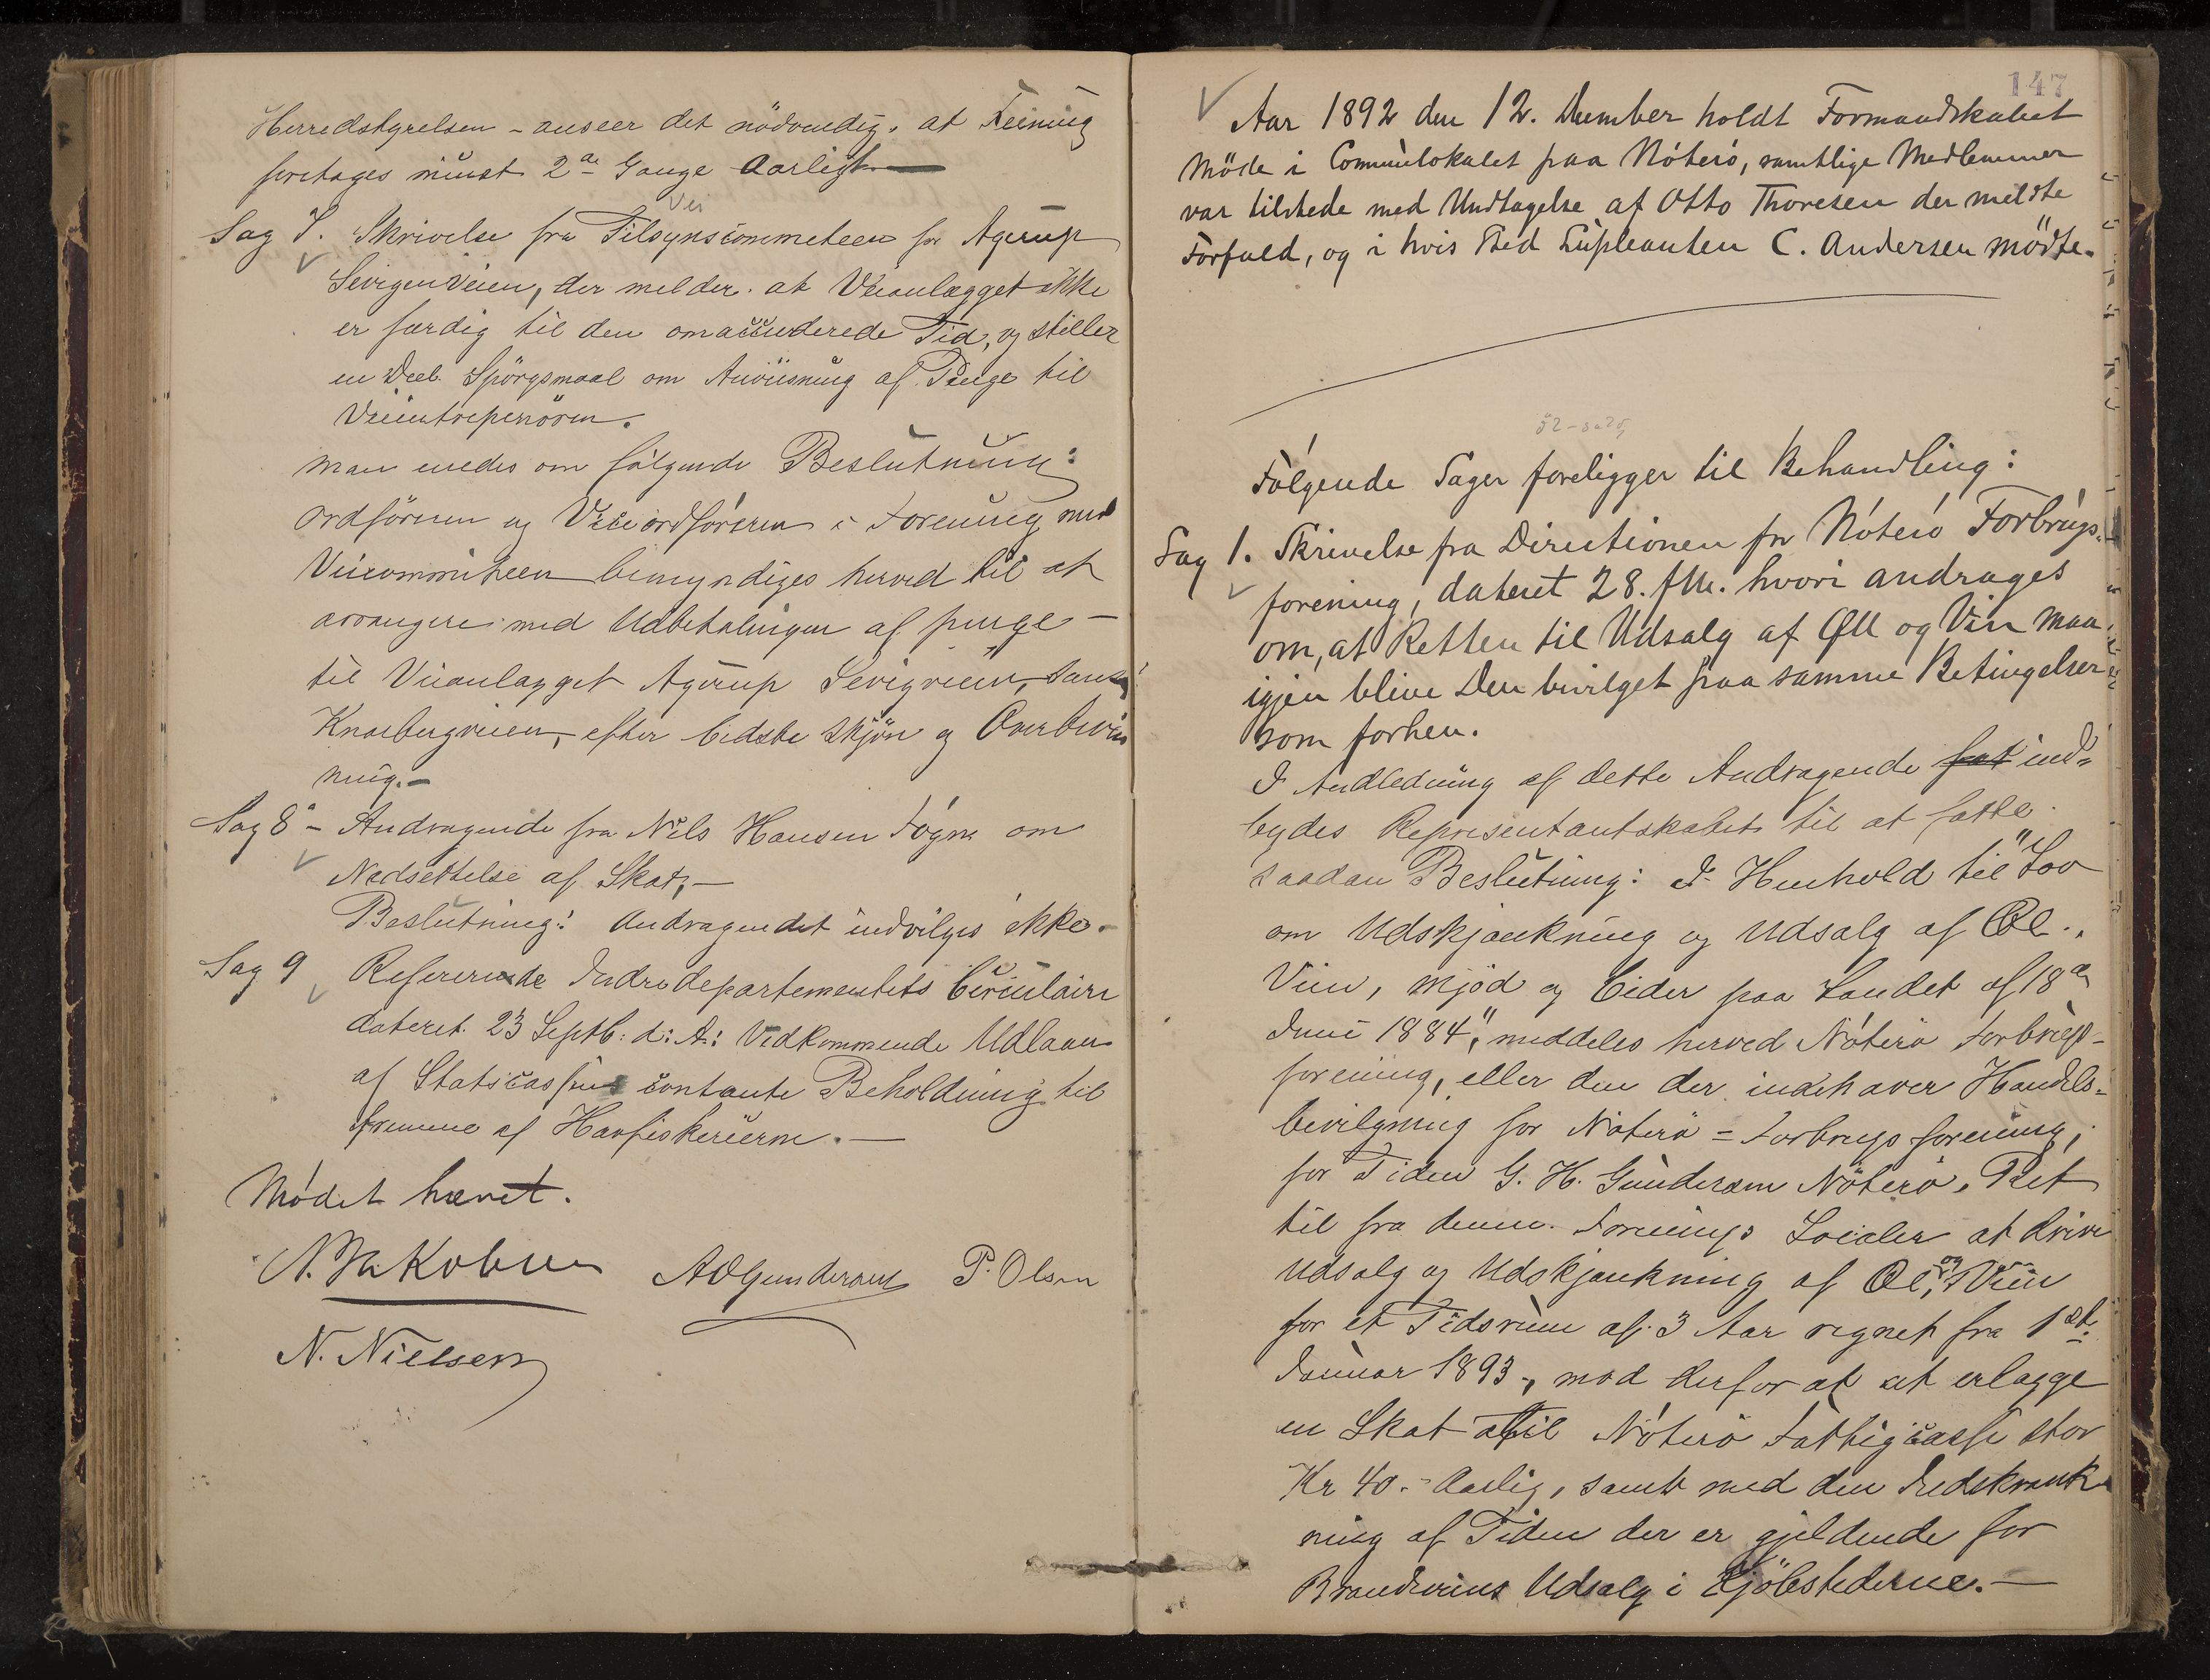 Herredstyrelsen - anseer det nödvendig, at Feining
foretages minst 2de Gange Aarligt. —
Vei
Sag 7. Skrivelse fra Tilsynscommeteen for Agerup
Sevigenveien, der melder. at Veianlægget ikke
er færdig til den omaccurderede Tid, og stiller
en Deel. Spörgsmaal om Anviisning af Penge til
Veientreprenören.
man enedes om fölgende Beslutning:
Ordföreren og Viceordföreren i Forening med
Veicommiteen bemyndiges herved til at
arrangere med Udbetalingen af penge —
til Veianlægget Agerup Sevigveien, samt
Knarbergveien, efter bedste Skjön og Overbeviis
ning. —
Sag 8 - Andragende fra Nils Hansen Fögne om
Nedsettelse af Skat, —
Beslutning: Andragendet indvilges ikke. -
Sag 9 Refererende Indredepartementets Circulaire
dateret 23 Septb: d: A: Vedkommende Udlaan
af Statscassens contante Beholdning til
fremme af Havfiskerierne. —
Mödet hævet.
N. Jakobsen A O Gundersen P. Olsen
N. Nielsen
147
Aar 1892 den 12. December holdt Formandskabet
Möde i Communelokalet paa Nöterö, samtlige Medlemmer
var tilstede med Undtagelse af Otto Thoresen der meldte
Forfald, og i hvis Sted Supleanten C. Andersen mödte.
Fölgende Sager foreligger til Behandling:
Sag 1. Skrivelse fra Directionen for Nöterö Forbrugs-
forening, dateret 28. f.M. hvori andrages
om, at Retten til Udsalg af Øll og Vin maa
igjen blive den bevilget paa samme Betingelser
som forhen.
I Andledning af dette Andragende fat ind-
bydes Representantskabet til at fatte
saadan Beslutning: I Henhold til "Lov
om Udskjænkning og Udsalg af Öl.,
Viin, Mjöd og Cider paa Landet af 18de
Juni 1884," meddeles herved Nöterö Forbrugs-
forening, eller den der indehaver Handels-
bevilgning for Nöterö = Forbrugsforening,
for Tiden G. H. Gundersen Nöterö, Ret
til fra denne Forenings Localer at drive
Udsalg og Udskjænkning af Öl, og Viin
for et Tidsrum af 3 Aar regnet fra 1ste
Januar 1893, mod derfor at at erlægge
en Skat af til Nöterö Fattigcasse stor
Kr 40. - Aarlig, samt med den Indskrænk
ning af Tiden der er gjeldende for
Brændeviins Udsalg i Kjöbstederne. —